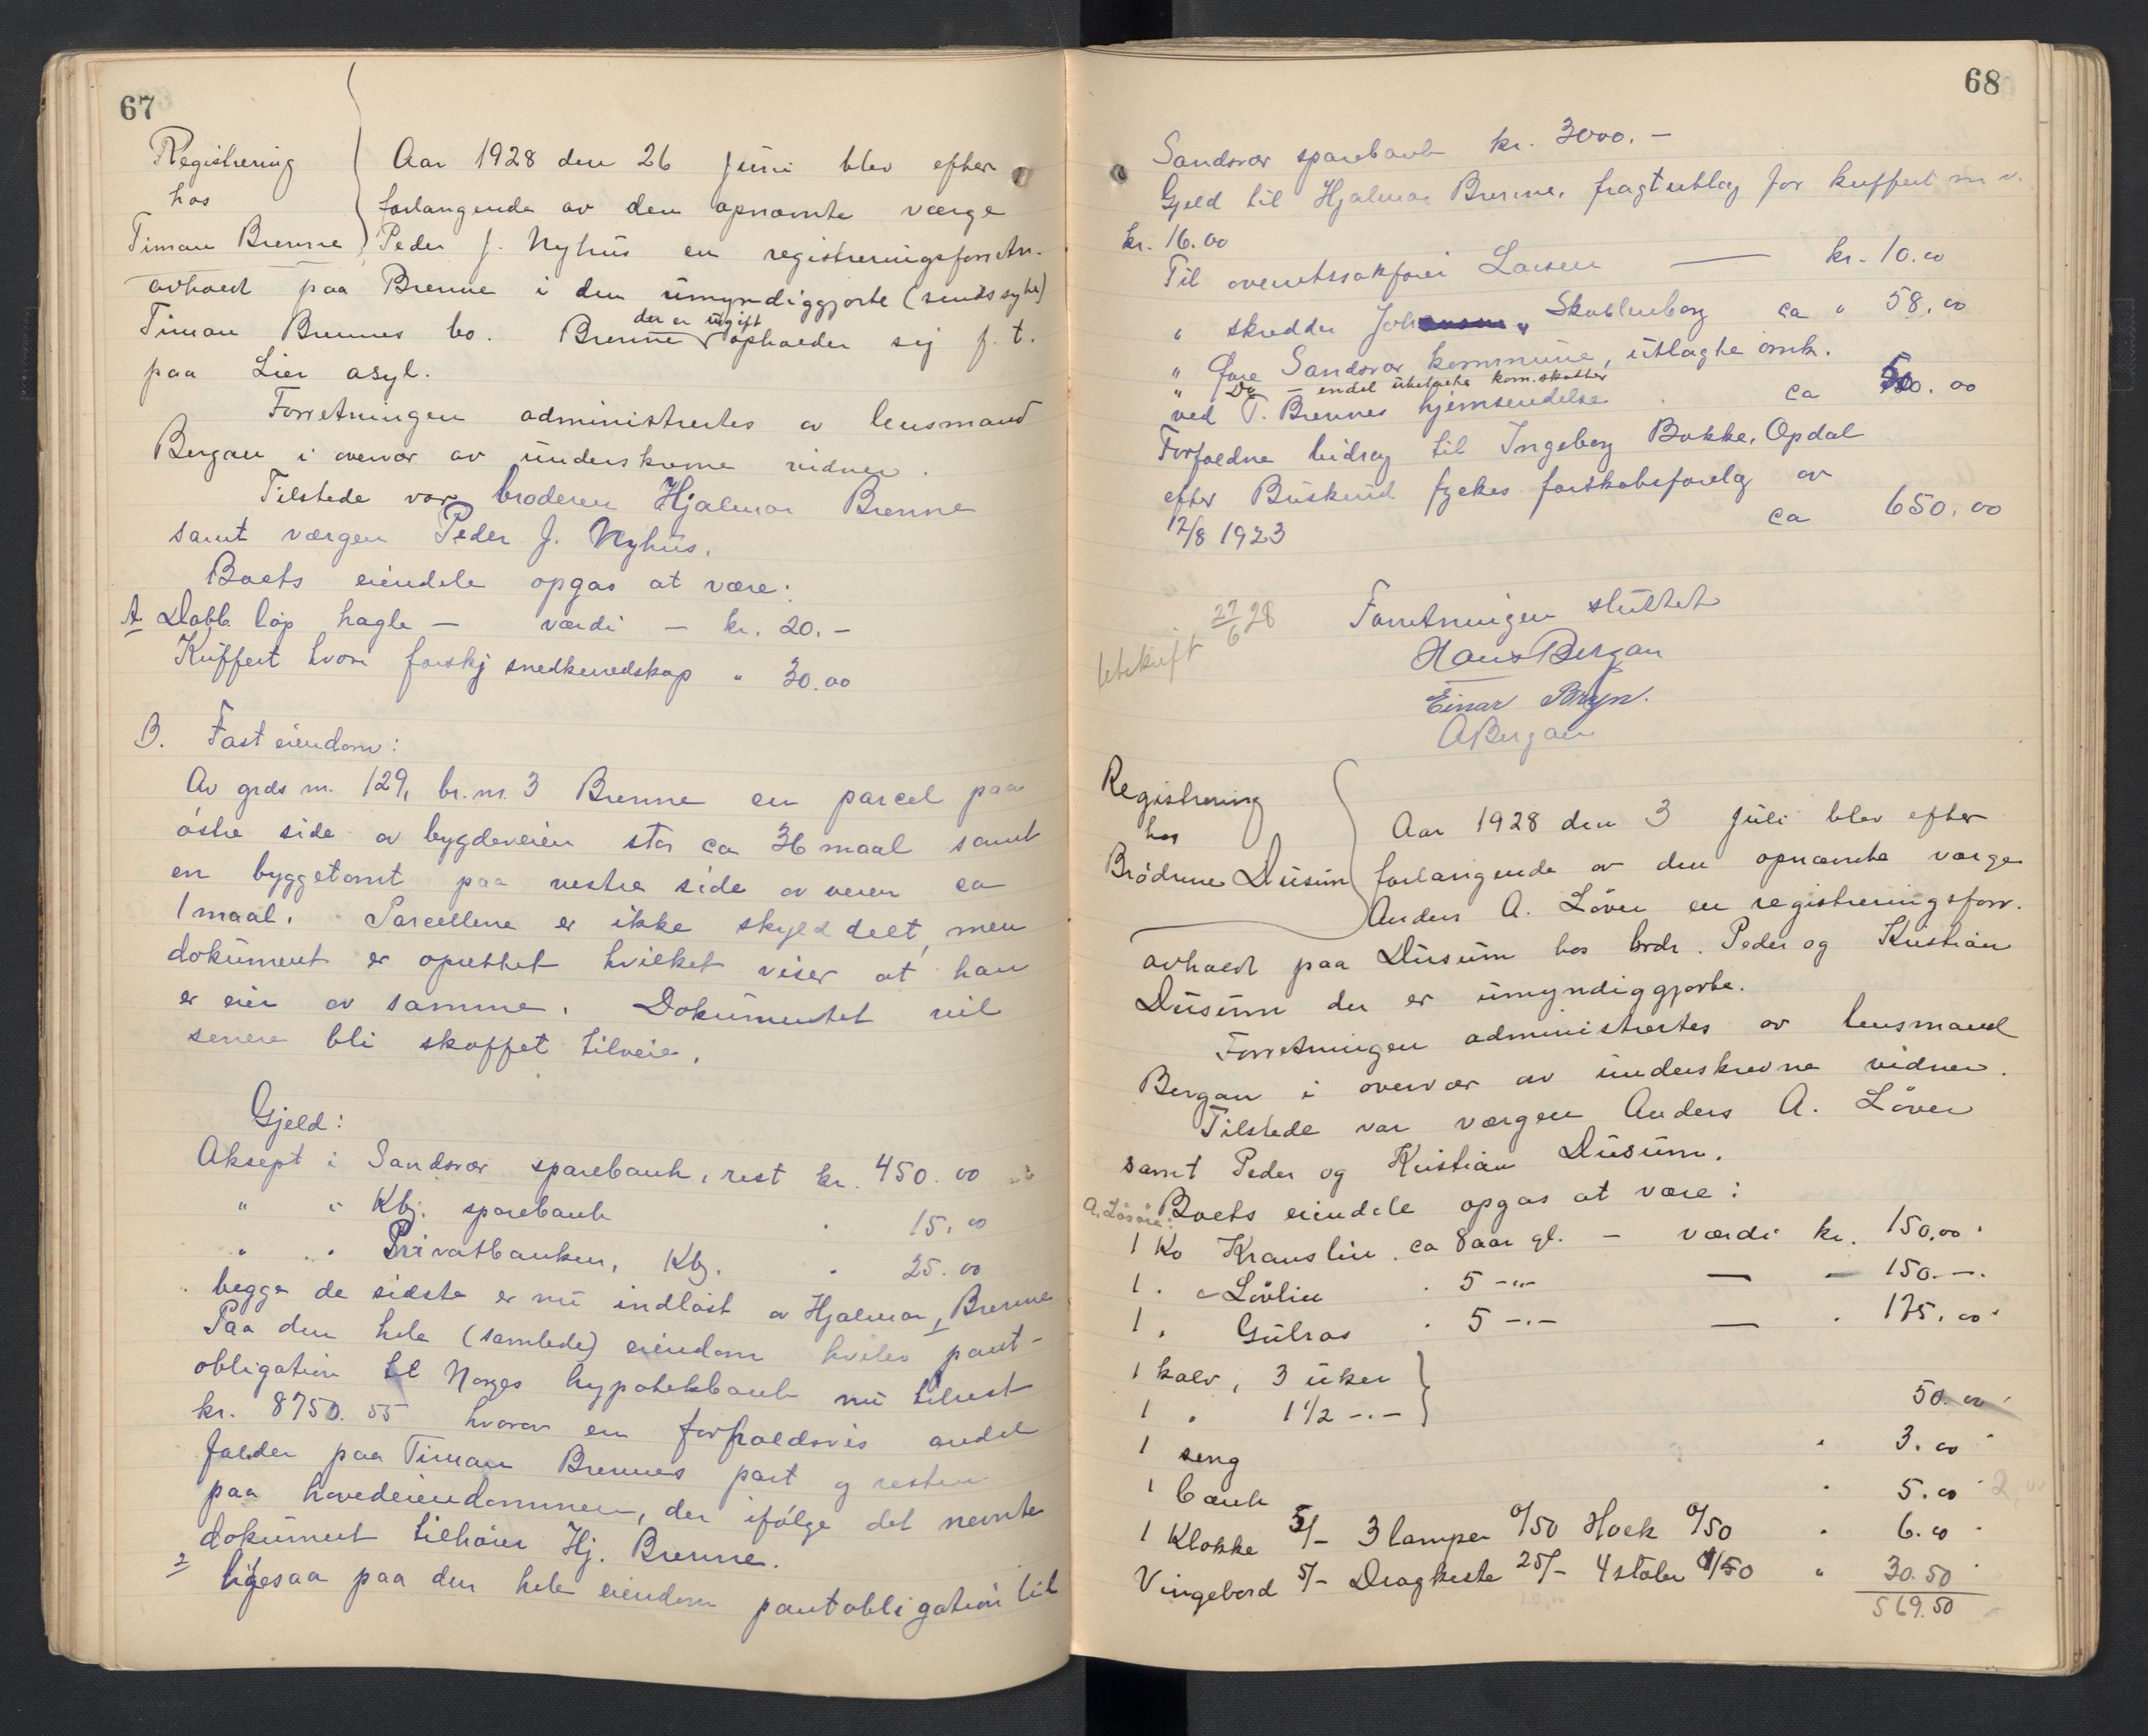 67
Registrering
hos
Timan Brenne
Aar 1928 den 26 juni blev efter
forlangende av den opnævnte værge
Peder J. Nyhus en registreringsforretn.
avholdt paa Brenne i den umyndiggjorte (sindssyke)
Timan Brennes bo. Brenne der er ugift opholder sig f. t.
paa Lier asyl.
Forretningen administrertes av lensmand
Bergan i overvær av underskrevne vidner.
Tilstede var broderen Hjalmar Brenne
samt værgen Peder J. Nyhus.
Boets eiendele opgas at være:
A Dobb. løp hagle — værdi — kr. 20.-
Kuffert hvori forskj snedkerredskap " 30.00
B. Fast eiendom:
Av grds nr. 129, br. nr. 3 Brenne en parcel paa
østre side av bygdeveien stor ca 36 maal samt
en byggetomt paa vestre side av veien ca
1 maal. Parcellene er ikke skylddelt, men
dokument er oprettet hvilket viser at han
er eier av samme. Dokumentet vil
senere bli skaffet tilveie.
Gjeld:
Aksept i Sandsvær sparebank, rest kr. 450.00
" i Kbg. sparebank " 15.00
" " Privatbanken, Kbg. " 25.00
begge de sidste er nu indløst av Hjalmar Brenne
Paa den hele (samlede) eiendom hviler pant-
obligation til Norges hypotekbank nu tilrest
kr. 8750.55 hvorav en forholdsvis andel
falder paa Timan Brennes part og resten
paa hovedeiendommen, der ifølge det nevnte
dokument tilhører Hj. Brenne.
2 ligesaa paa den hele eiendom pantobligation til
68
Sandsvær sparebank kr. 3000.-
Gjeld til Hjalmar Brenne, fragtutlæg for kuffert m v.
kr. 16.00
Til overretssakfører Larsen — kr. 10.00
" skredder Skollenborg ca " 58.00
" Øvre Sandsvær kommune, utlagte omk.
" Do — endel ubetalte kom. skatter
ved T. Brennes hjemsendelse ca 500.00
Forfaldne bidrag til Ingeborg Bakke, Opdal
efter Buskerud fylkes farskapsforelæg av
17/8 1923 ca 650.00
27/6 28
utskrift
Forretningen sluttet
Hans Bergan
Einar Bryn.
A Bergan
Registrering
hos
Brødrene Dusum
Aar 1928 den 3 juli blev efter
forlangende av den opnævnte værge
Anders A. Løver en registreringsforr.
avholdt paa Dusum hos brdr. Peder og Kristian
Dusum der er umyndiggjorte.
Forretningen administrertes av lensmand
Bergan i overvær av underskrevne vidner.
Tilstede var værgen Anders A. Løver
samt Peder og Kristian Dusum.
Boets eiendele opgas at være:
A. Løsøre:
1 Ko Kranslin ca 8 aar gl. — værdi kr. 150.00
1 " Løvlin " 5 -"- — " 150.-
1 " Gulros " 5 -"- — " 175.00
1 kalv, 3 uker
1 " 1 1/2 -"- 50.00
1 seng " 3.00
1 bænk " 5.00
1 Klokke 5/- 3 lamper 0/50 Hoek 0/50 " 6.00
Vingebord 5/- Dragkiste 25/- 4 stoler 0/50 " 30.50
569.50